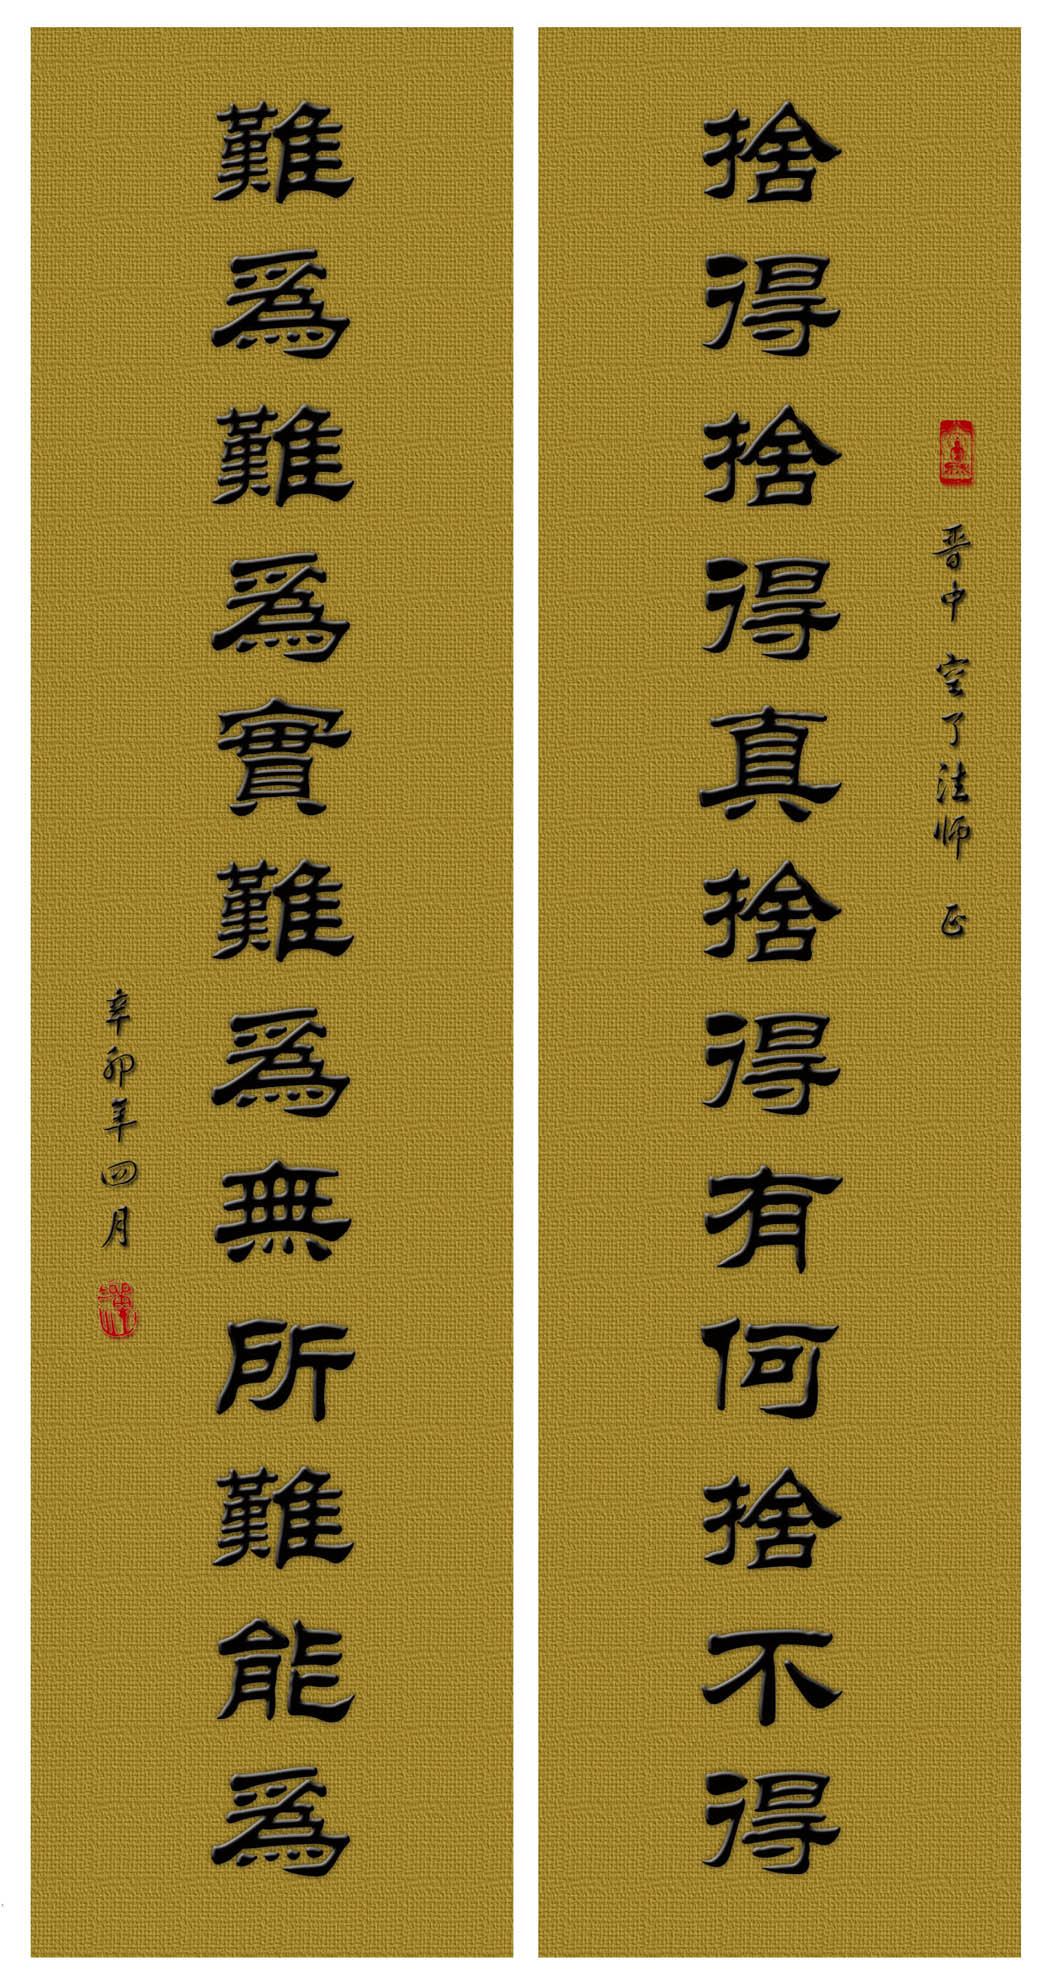 捨得捨得真捨得有何捨不得
晋中 空了法师 正
難為難為實難為無所難能為
辛卯年四月